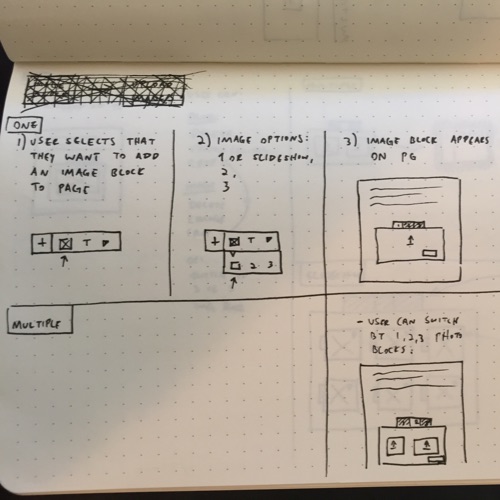 ONE
1) USER SELECTS THAT
THEY WANT TO ADD
AN IMAGE BLOCK
TO PAGE
+ T
2) IMAGE OPTIONS:
1 OR SLIDESHOW,
2,
3
+ T
2 3
3) IMAGE BLOCK APPEARS
ON PG
MULTIPLE
- USER CAN SWITCH
BT 1,2,3 PHOTO
BLOCKS: